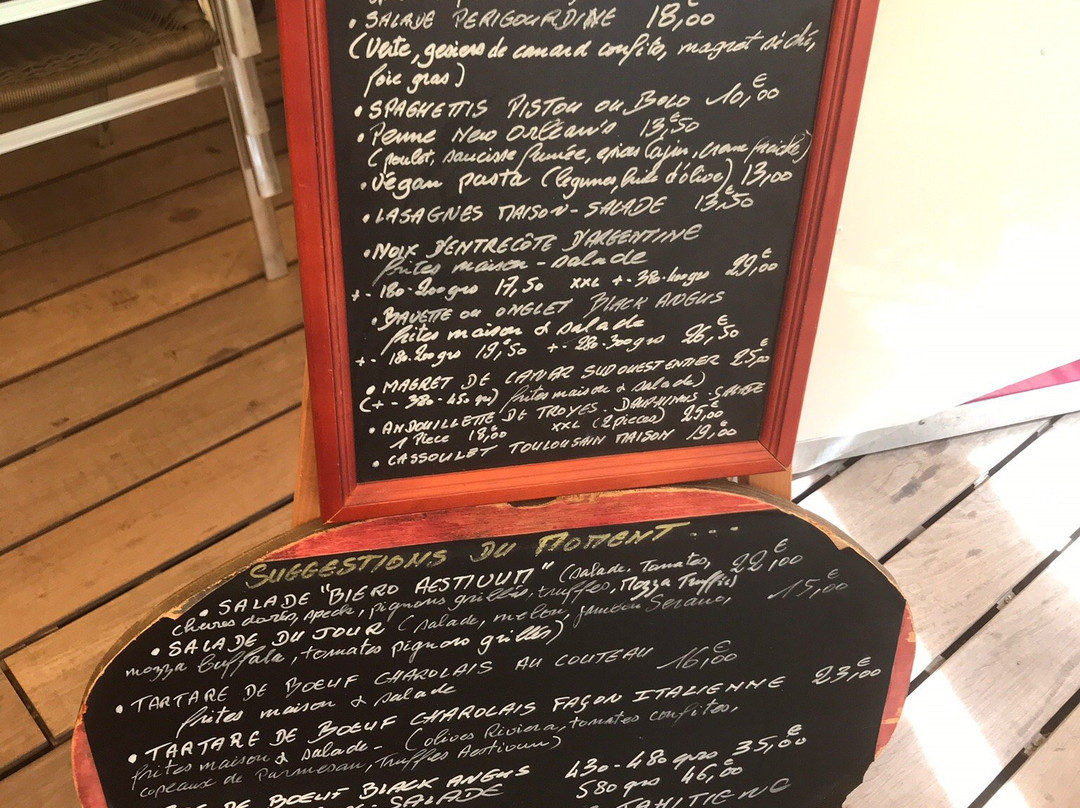 • SALADE PERIGOURDINE 18,00
(verte, gesiers de canard confits, magret séché,
foie gras)
• SPAGHETTIS PISTOU OU BOLO 10,00 €
• Penne New Orléan's 13,50 €
(poulet, saucisse fumée, epices cajun, creme fraiche)
• Vegan pasta (legumes, huile d'olive) 13,00 €
• LASAGNES MAISON - SALADE 13,50 €
• NOIX D'ENTRECÔTE D'ARGENTINE
frites maison - salade
+- 180-200 grs 17,50 XXL +- 380-400 grs 29,00 €
• BAVETTE ou ONGLET BLACK ANGUS
frites maison & salade
+- 180-200 grs 19,50 € +- 280-300 grs 26,50 €
• MAGRET DE CANAR SUD OUEST ENTIER 25,00 €
(+- 380-450 grs) frites maison & salade)
• ANDOUILLETTE DE TROYES - DAUPHINOIS - SALADE
1 Piece 18,00 € XXL (2 pieces) 25,00 €
• CASSOULET TOULOUSAIN MAISON 19,00 €
SUGGESTIONS DU MOMENT ...
• SALADE "BIERO AESTIVUM" (salade, Tomates, 22,00 €
chevre dorés, speck, pignons grillés, truffes, Mozza Truffes)
• SALADE DU JOUR (salade, melon, jambon Serano, 15,00 €
mozza buffala, tomates pignons grillés)
• TARTARE DE BOEUF CHAROLAIS AU COUTEAU 16,00 €
frites maison & salade
• TARTARE DE BOEUF CHAROLAIS FAÇON ITALIENNE 23,00 €
frites maison & salade - (olives Riviera, tomates confites,
copeaux de Parmesan, Truffes Aestivum)
DE BOEUF BLACK ANGUS 430-480 grs 35,00 €
- SALADE 580 grs 46,00 €
TAHITIENE